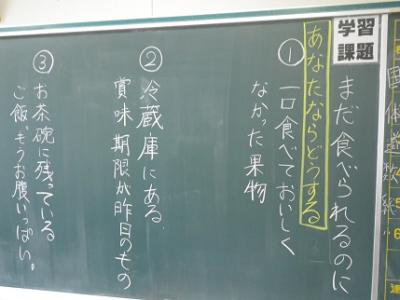 学習課題
まだ食べられるのに
あなたならどうする
① 一口食べておいしく
なかった果物
② 冷蔵庫にある
賞味期限が昨日のもの
③ お茶碗に残っている
ご飯、もうお腹いっぱい。